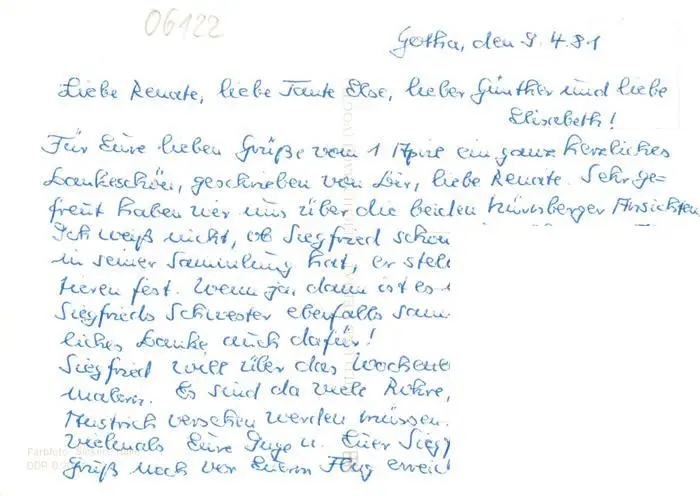 06122
Gotha, den 9. 4. 81
Liebe Renate, liebe Tante Else, lieber Günther und liebe
Elisabeth!
Für Eure lieben Grüße vom 1 April ein ganz herzliches
Dankeschön, geschrieben von Dir, liebe Renate. Sehr ge=
freut haben wir uns über die beiden Nürnberger Ansichten
Ich weiß nicht, ob Siegfried schon
in seiner Sammlung hat, er stell
tieren fest. Wenn ja, dann ist es
Siegfrieds Schwester ebenfalls sam
liches Danke auch dafür!
Siegfried will über das Wochene
malern. Es sind da viele Rohre,
Anstrich versehen werden müssen.
vielmals Eure Inge u. Euer Sieg
Gruß noch vor Eurem Flug erreic
Farbfoto:
DDR